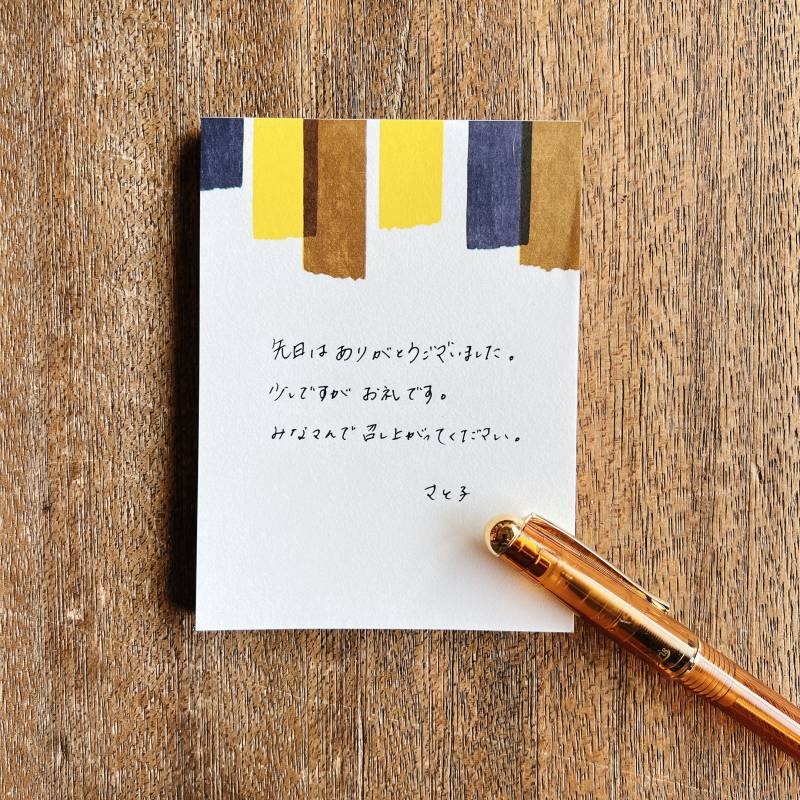 先日はありがとうございました。
少しですが お礼です。
みなさんで 召し上がってください。
さと子